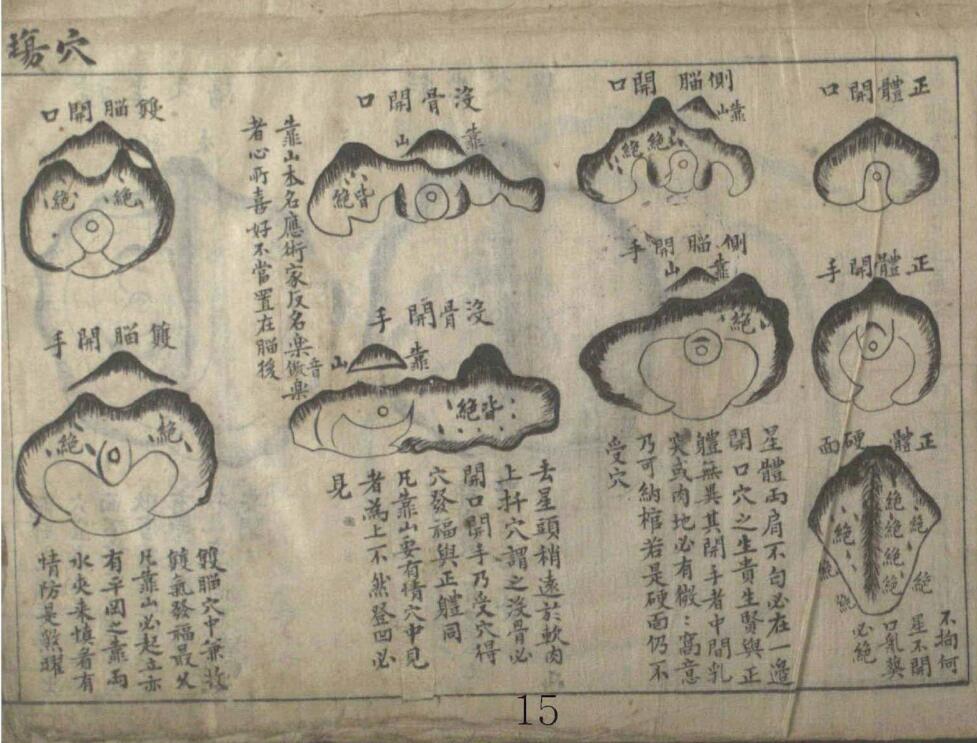 穴塲
正體開口
正體開手
正體硬面
絕
絕
絕
絕
絕
絕
絕
絕
絕
不拘何
星不開
口乳葬
必絕
側腦開口
靠山
絕
絕
側腦開手
靠山
絕
星體兩肩不勻必在一邉
開口穴之生貴生賢與正
軆無異其開手者中間乳
突或肉地必有微:窩意
乃可納棺若是硬面仍不
受穴
沒骨開口
靠山
皆絕
沒骨開手
靠山
皆絕
去星頭稍遠於軟肉
上扦穴謂之沒骨必
開口開手乃受穴得
穴發福與正軆同
凡靠山要有情穴中見
者為上不然登凹必
見
靠山本名應術家反名樂
音
者心所喜好不當置在腦後
䨇腦開口
絕
絕
䨇腦開手
絕
絕
䨇腦穴中兼
䨇氣發福最久
凡靠山必起立亦
有平岡之靠兩
水夾来慎者有
情防是煞曜
15